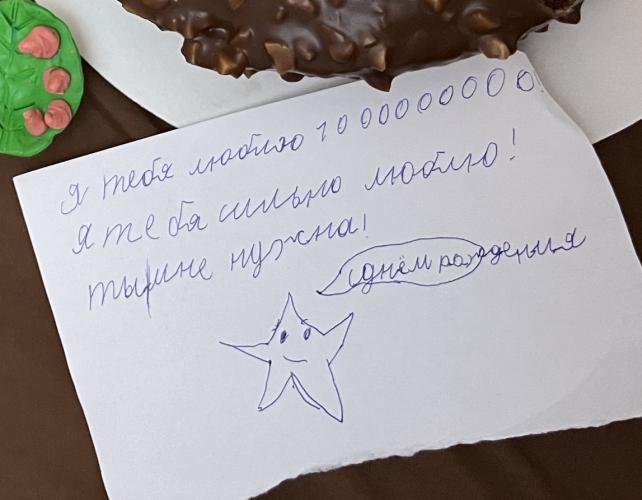 Я тебя люблю 10000000000
я тебя сильно люблю!
ты мне нужна!
с днём рождения